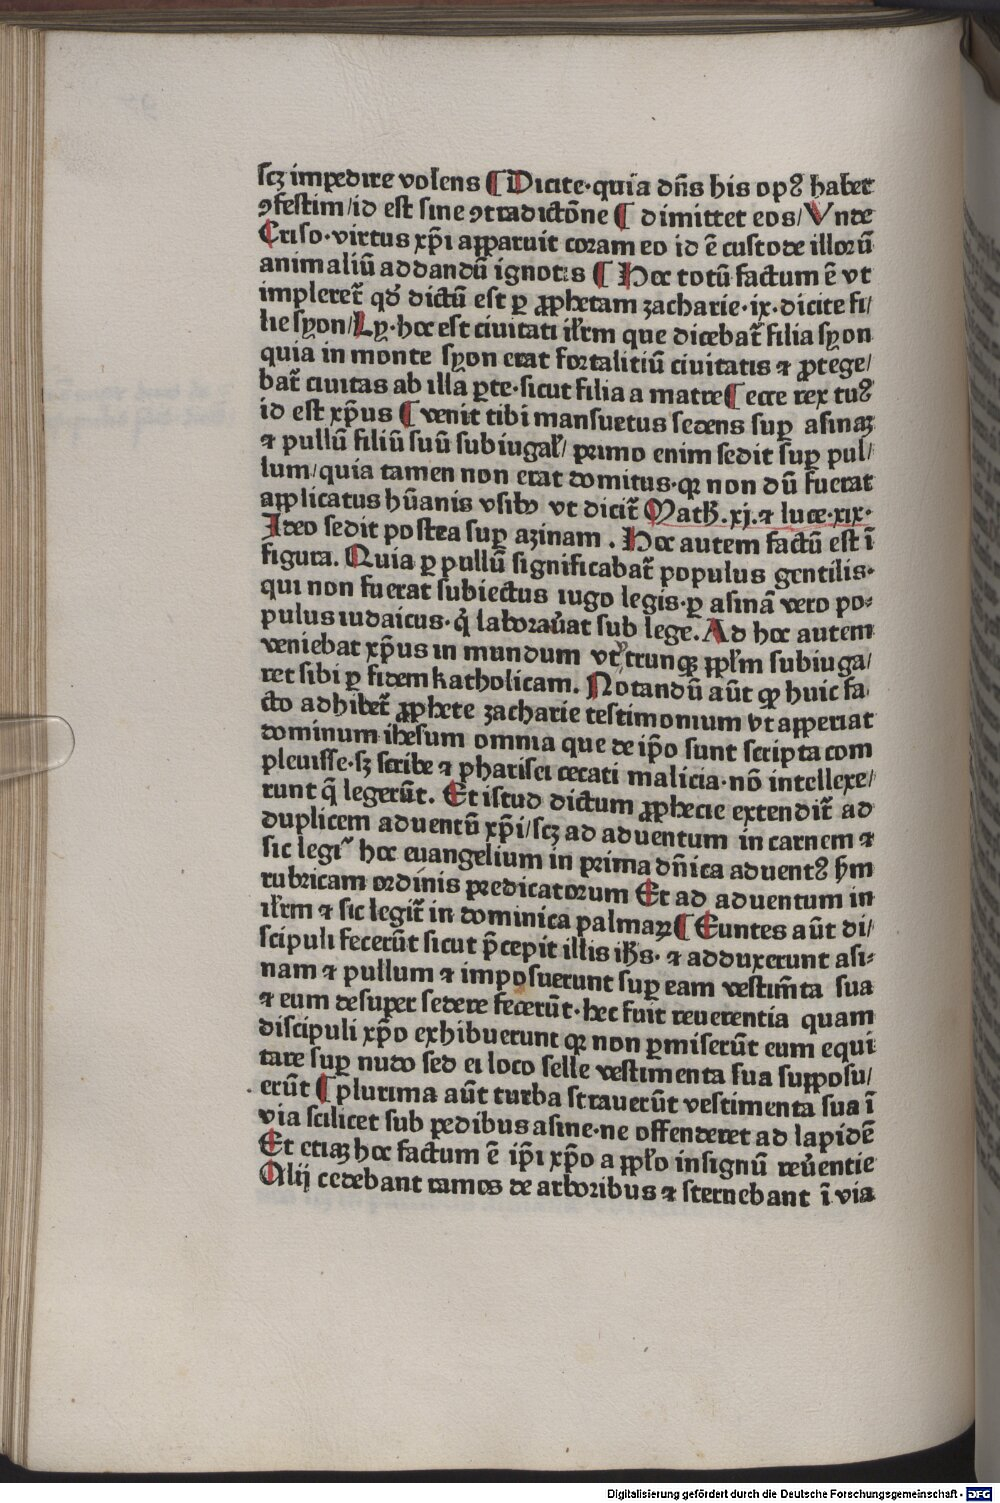 scꝫ impedire volens ¶ Dicite·quia dn̄s his opꝰ habet
ꝯfestim/id est sine ꝯtradictōne ¶ dimittet eos/Vnde
Criso·virtus xp̄i apparuit coram eo id ē custode illorū
animaliū ad dandū ignotis ¶ Hoc totū factum ē vt
impleret̄ qd̓ dictū est ꝑ ꝓphetam zacharie·ix·dicite fi/
lie syon/Ly·hoc est ciuitati ihrl̄m que dicebat̄ filia syon
quia in monte syon erat fortalitiū ciuitatis ⁊ ꝓtege/
bat̄ ciuitas ab illa ꝑte·sicut filia a matre ¶ ecce rex tuꝰ
id est xp̄us ¶ venit tibi mansuetus sedens suꝑ asinaꝫ
⁊ pullū filiū suū subiugal̓/ primo enim sedit suꝑ pul/
lum/quia tamen non erat domitus·qꝛ non dū fuerat
applicatus hūanis vsibꝰ vt dicit̄ Math̄.xj.⁊ luce·xix·
Ideo sedit postea suꝑ azinam . Hoc autem factū est ī
figura. Quia ꝑ pullū significabat̄ populus gentilis·
qui non fuerat subiectus iugo legis·ꝑ asinā vero po⸗
pulus iudaicus·q̓ laborau̓at sub lege. Ad hoc autem
veniebat xp̄us in mundum vt vtrunqꝫ ppl̄m subiuga/
ret sibi ꝑ fidem katholicam. Notandū aūt ꝙ huic fa
cto adhibet̄ ꝓphete zacharie testimonium vt apperiat
dominum ihesum omnia que de ip̄o sunt scripta com
pleuisse·sꝫ scribe ⁊ pharisei cecati malicia·nō intellexe/
runt q̄ legerūt. Et istud dictum ꝓphecie extendit̄ ad
duplicem aduentū xp̄i/scꝫ ad aduentum in carnem ⁊
sic legit̄ hoc euangelium in prima dn̄ica aduentꝰ ẜm
rubricam ordinis predicatorum Et ad aduentum in
ihrl̄m ⁊ sic legit̄ in dominica palmaꝝ ¶ Euntes aūt di/
scipuli fecerūt sicut p̄cepit illis ih̄s· ⁊ adduxerunt asi⸗
nam ⁊ pullum ⁊ imposuerunt suꝑ eam vestim̄ta sua
⁊ eum desuper sedere fecerūt·hec fuit reuerentia quam
discipuli xp̄o exhibuerunt qꝛ non ꝑmiserūt eum equi
tare suꝑ nudo sed ei loco selle vestimenta sua supposu/
erūt ¶ plurima aūt turba strauerūt vestimenta sua ī
via scilicet sub pedibus asine·ne offenderet ad lapidē
Et etiaꝫ hoc factum ē ip̄i xp̄o a ppl̓o insignū reu̓entie
Alij cedebant ramos de arboribus ⁊ sternebant ī via
Digitalisierung gefördert durch die Deutsche Forschungsgemeinschaft - DFG